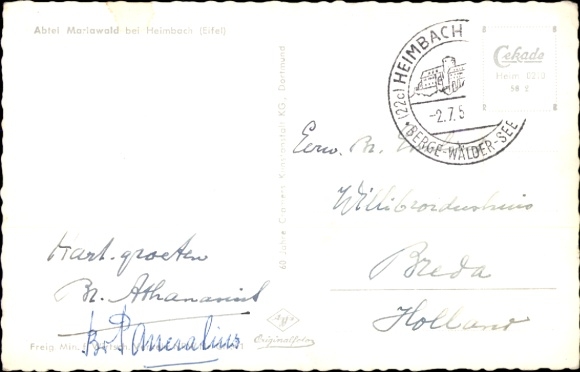 Abtei Mariawald bei Heimbach (Eifel)
(22c) HEIMBACH
-2.7.5
BERGE-WÄLDER-SEE
Cekade
Heim
60 Jahre Cramers Kunstanstalt KG., Dortmund
Eerw. Br.
Willibrordushuis
Breda
Holland
Hart. groeten
Br. Athanasius
Br. Pancratius
Agfa
Originalfoto